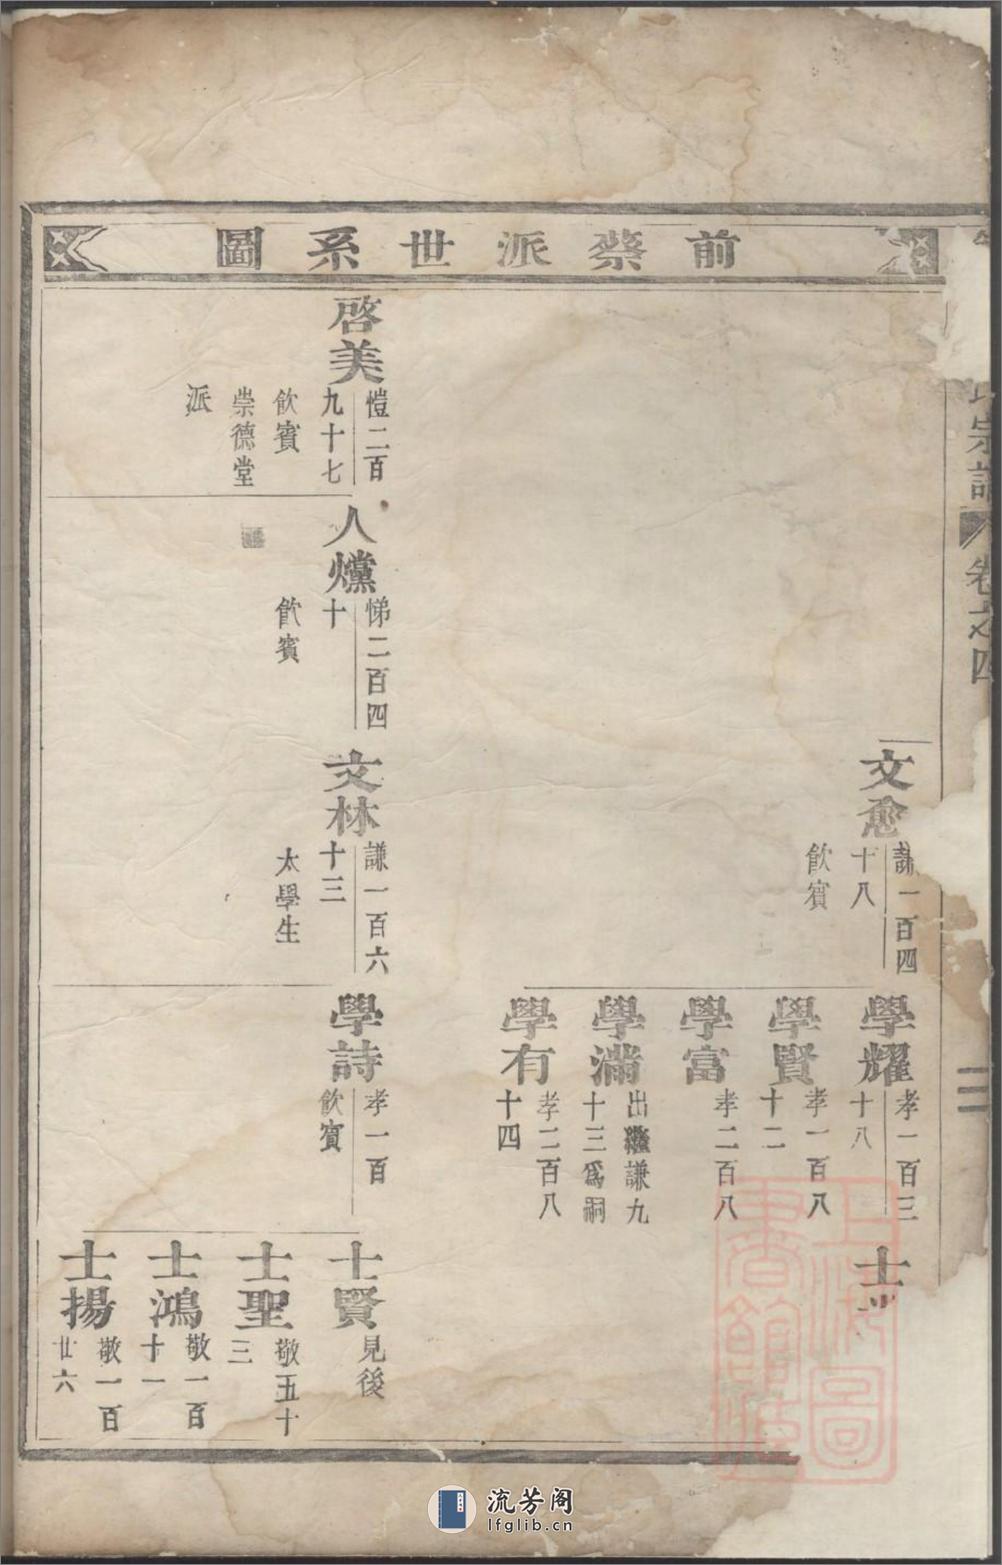 前蔡派世系圖
宗譜
卷之四
二
文愈
謙一百四
十八
飲賓
學耀
孝一百三
十八
學賢
孝一百八
十二
學富
孝二百八
學滿
出繼謙九
十三爲嗣
學有
孝二百八
十四
士
啓美
愷二百
九十七
飲賓
崇德堂
派
人爣
悌二百四
十
飲賓
文林
謙一百六
十三
太學生
學詩
孝一百
飲賓
士賢
見後
士聖
敬五十
三
士鴻
敬一百
十一
士揚
敬一百
廿六
上海圖
書館藏
流芳阁
lfglib.cn